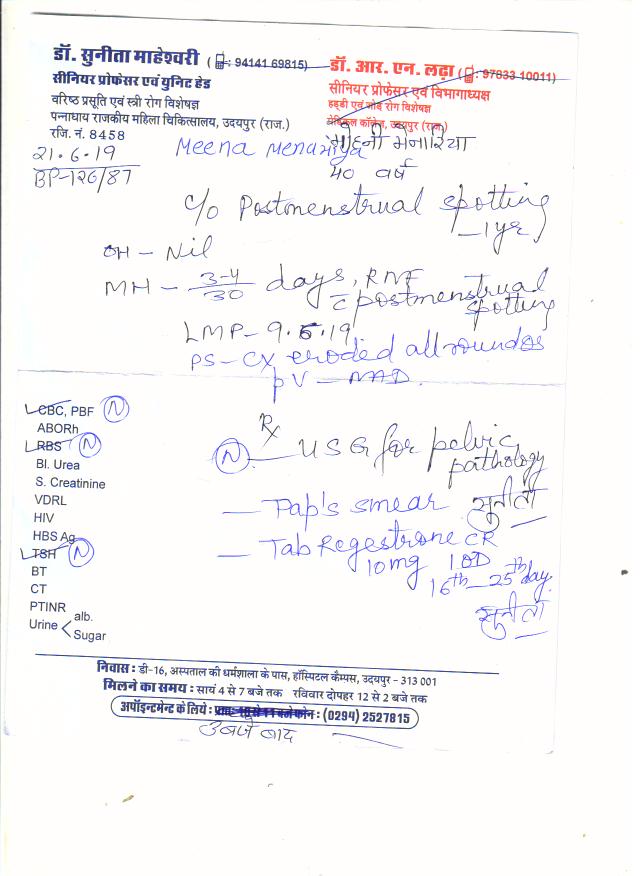 डॉ. सुनीता माहेश्वरी (: 94141 69815)
सीनियर प्रोफेसर एवं युनिट हेड
वरिष्ठ प्रसूति एवं स्त्री रोग विशेषज्ञ
पन्नाधाय राजकीय महिला चिकित्सालय, उदयपुर (राज.)
रजि. नं. 8458
डॉ. आर. एन. लढ़ा (: 97833 10011)
सीनियर प्रोफेसर एवं विभागाध्यक्ष
हड्डी एवं जोड़ रोग विशेषज्ञ
मेडिकल कॉलेज, उदयपुर (राज.)
21.6.19
BP-126/87
Meena
मेनारिया
40 वर्ष
c/o Postmenstrual spotting
- 1 yr
OH - Nil
MH - 3-4/30 days, RNF
c postmenstrual
spotting
LMP - 9.5.19
PS - CX eroded all round os
PV - NAD.
CBC, PBF N
ABORh
RBS N
Bl. Urea
S. Creatinine
VDRL
HIV
HBS Ag
TSH N
BT
CT
PTINR
Urine < alb.
Sugar
Rx
N - USG for pelvic
pathology
- Pap's smear सुनीता
- Tab Regestrone CR
10mg 1 OD
16th - 25th day
सुनीता
निवास : डी-16, अस्पताल की धर्मशाला के पास, हॉस्पिटल कैम्पस, उदयपुर - 313 001
मिलने का समय : सायं 4 से 7 बजे तक रविवार दोपहर 12 से 2 बजे तक
अपॉइन्टमेन्ट के लिये : फोन : (0294) 2527815
3 बजे बाद